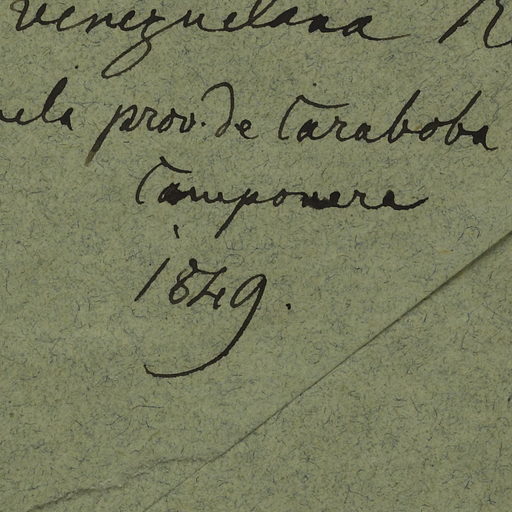 venezuelana
prov. de Caraboba
Camponera
1849.